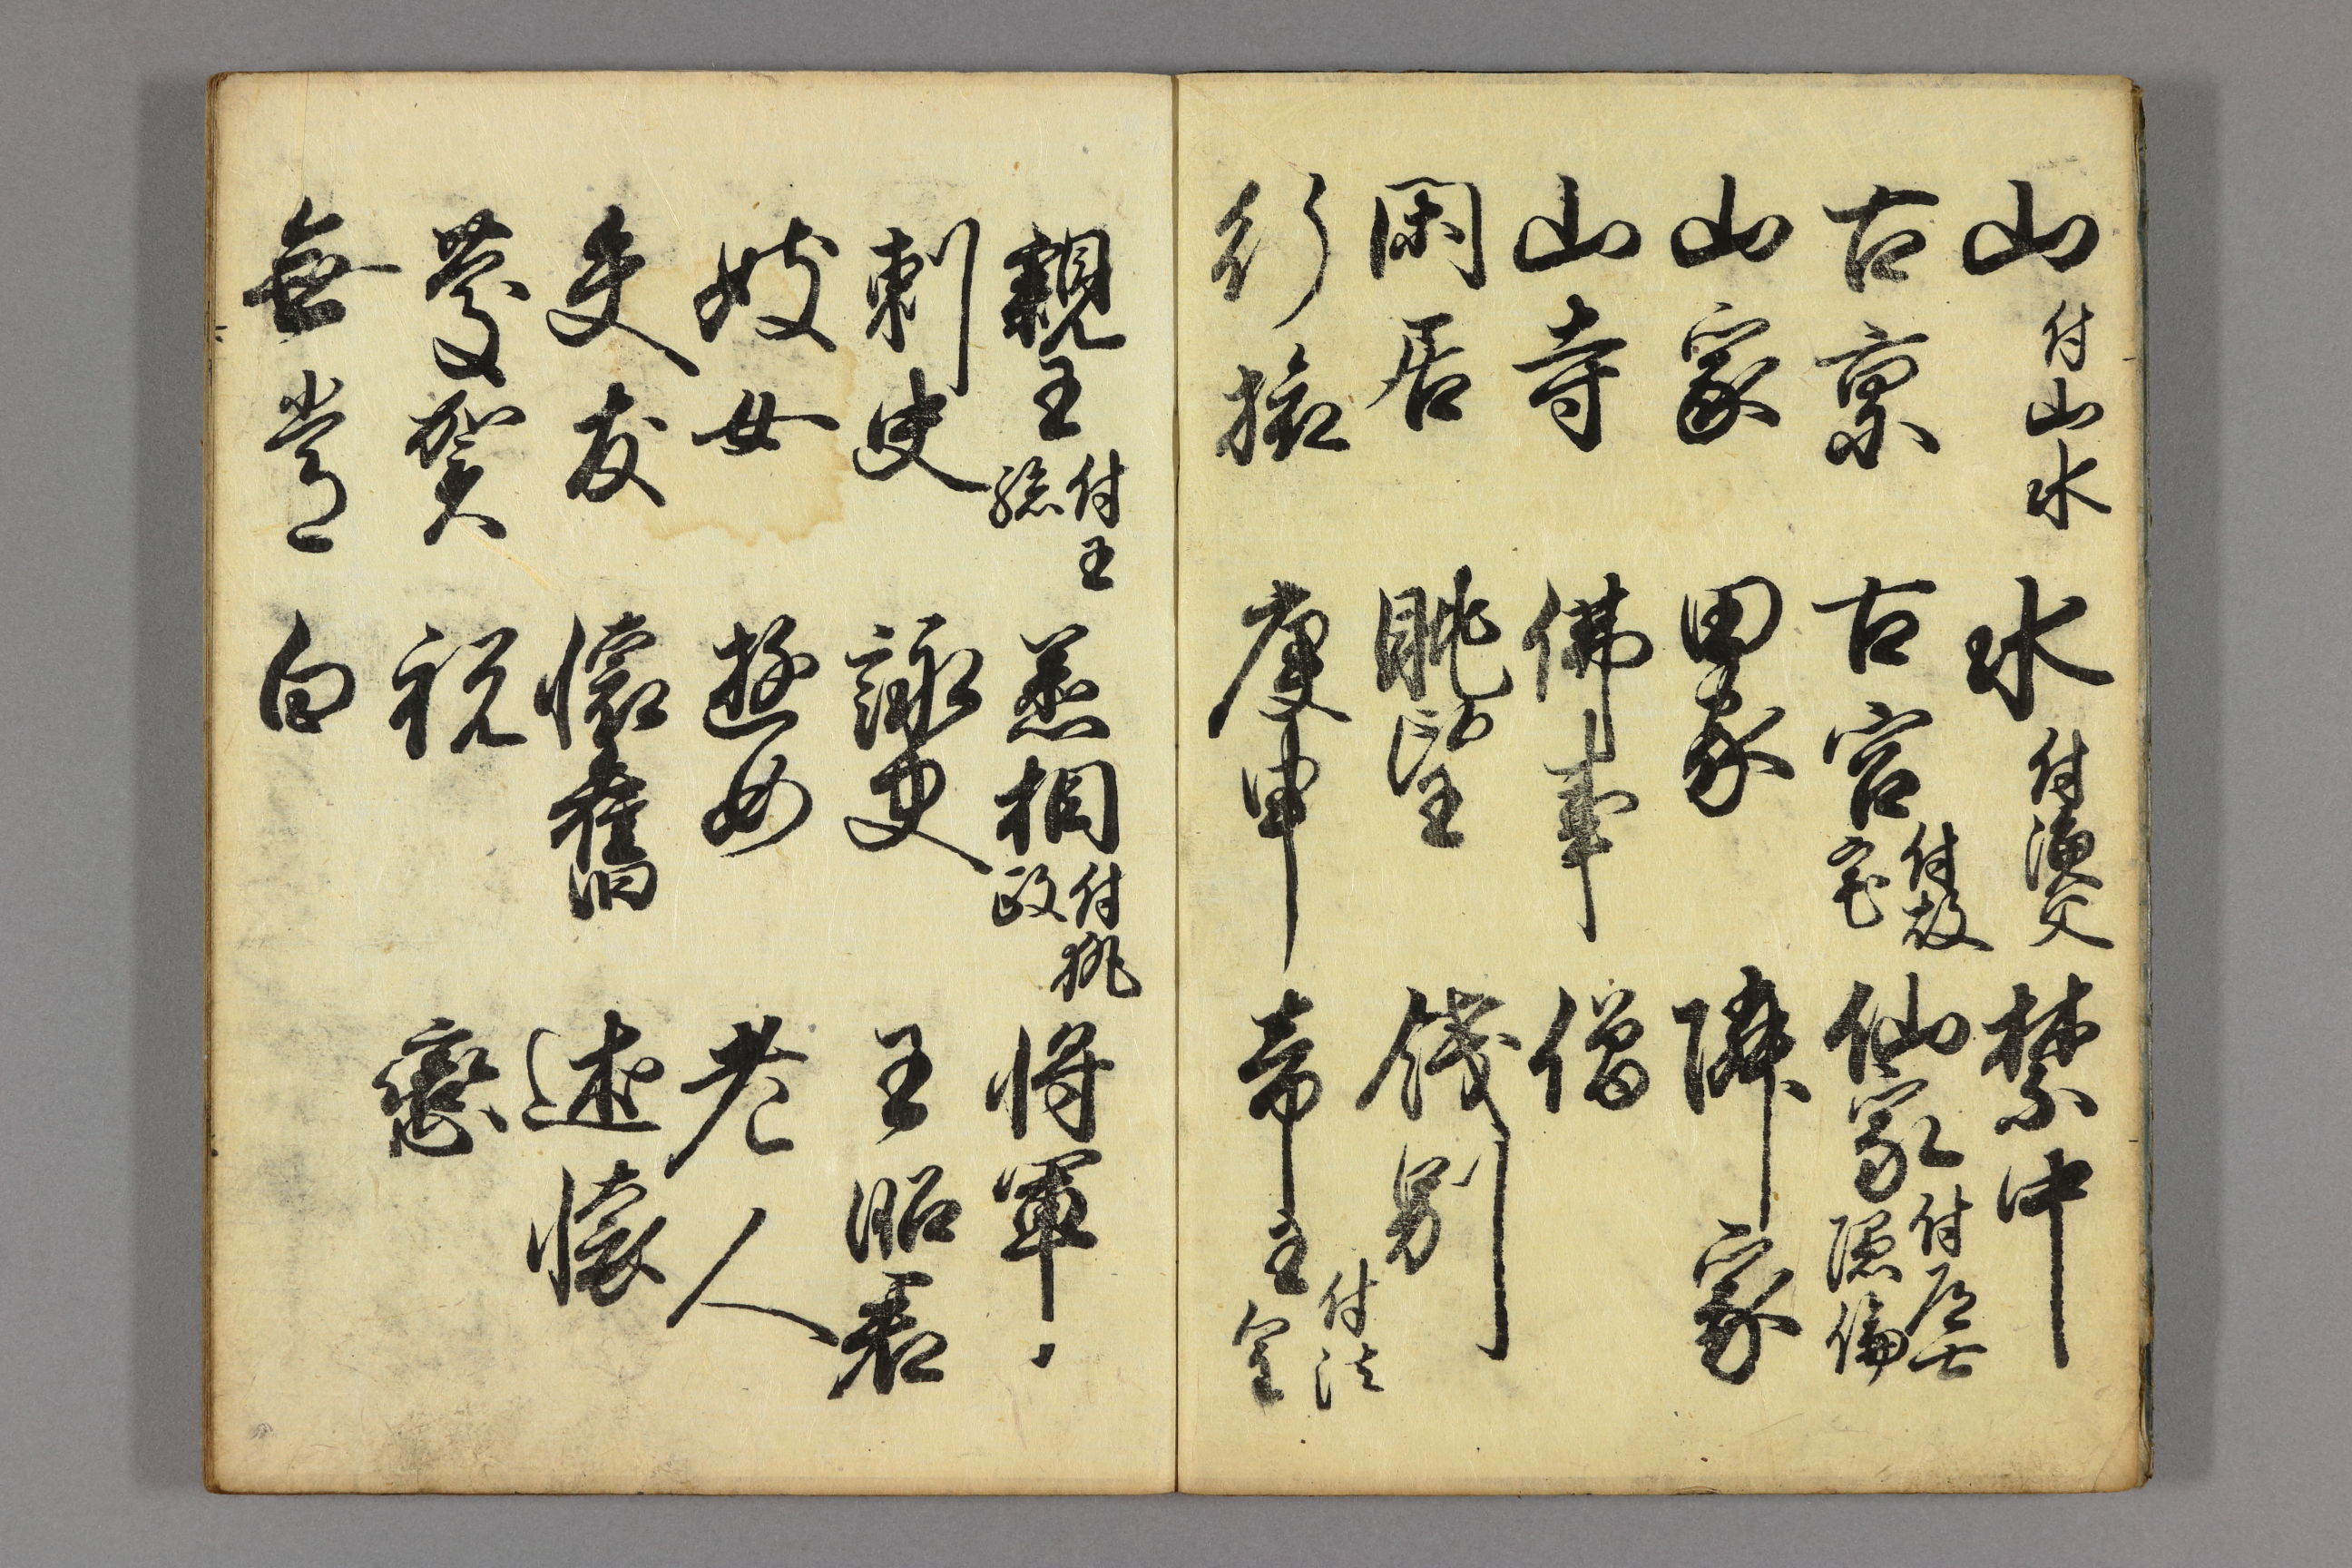 山 付山水 水 付漁父 禁中
古京 古宮 付故宅 仙家 付道士隠倫
山家 田家 隣家
山寺 佛事 僧
閑居 眺望 餞別
行旅 庚申 帝王 付法皇
親王 付王孫 丞相 付執政 将軍
刺史 詠史 王昭君
妓女 遊女 老人
交友 懐舊 述懐
慶賀 祝 戀
無常 白